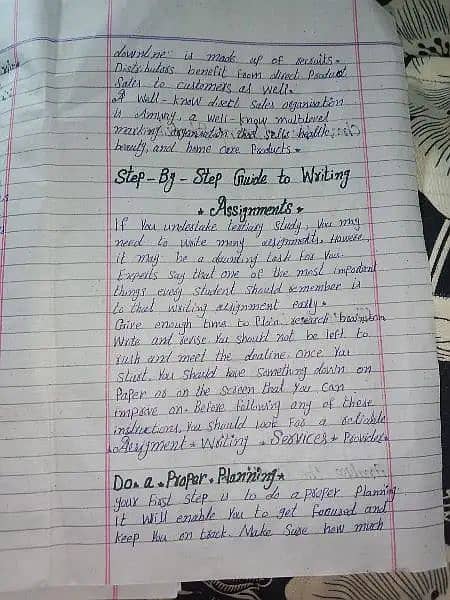 downline is made up of recruits.
Distributors benefit from direct Product
Sales to customers as well.
A well-know direct Sales organisation
is Amway, a well-know multilevel
marking organisation that sells health,
beauty, and home care Products.
Step-By-Step Guide to Writing
Assignments
If You undertake tertiary study, You may
need to write many assignments. However,
it may be a daunting task for You.
Experts say that one of the most important
things every student should remember is
to that writing assignment early.
Give enough time to Plan, research brainstorm
Write and revise You should not be left to
rush and meet the dealine. once You
start. You should have something down on
Paper or on the screen that You can
improve on. Before following any of these
instructions, You should look For a reliable
Assignment Writing Services Provider
Do a Proper Planning
Your First step is to do a proper Planning
it Will enable You to get Focused and
keep You on track. Make Sure how much